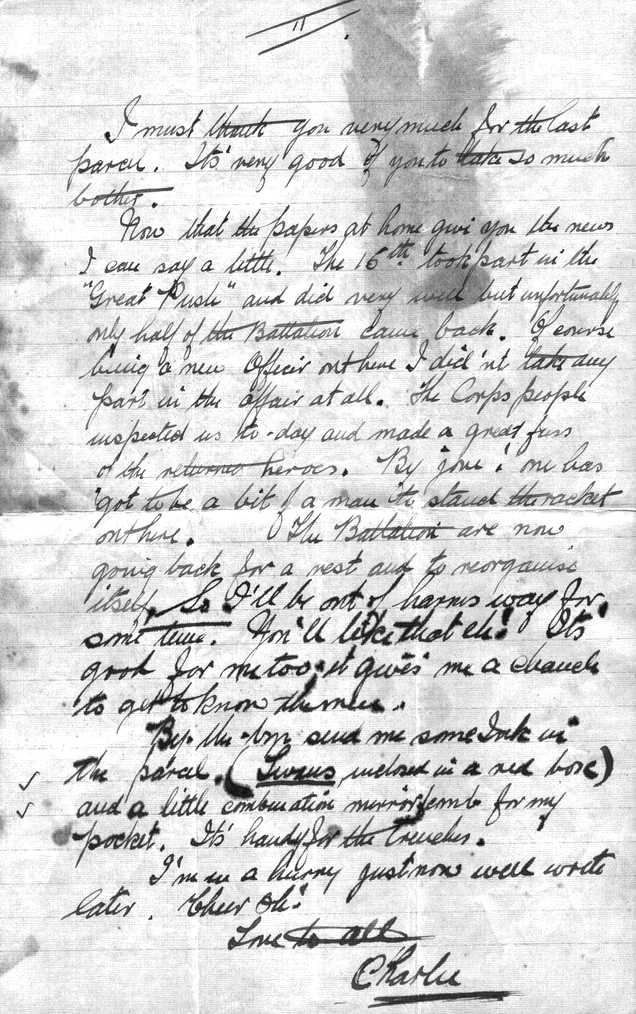 11
I must thank you very much for the last
parcel. It's very good of you to take so much
bother.
Now that the papers at home give you the news
I can say a little. The 16th took part in the
"Great Push" and did very well but unfortunately
only half of the Battalion came back. Of course
being a new Officer out here I did'nt take any
part in the affair at all. The Corps people
inspected us to-day and made a great fuss
of the returned heroes. By jove! one has
got to be a bit of a man to stand the racket
out here. The Battalion are now
going back for a rest and to reorganise
itself. So I'll be out of harms way for
some time. You'll like that eh! It's
good for me too, it gives me a chance
to get to know the men.
By-the-bye send me some Ink in
the parcel. (Swans, inclosed in a red box)
and a little combination mirror, comb for my
pocket. It's handy for the trenches.
I'm in a hurry just now will write
later. Cheer Oh!
Love to all
Charlie